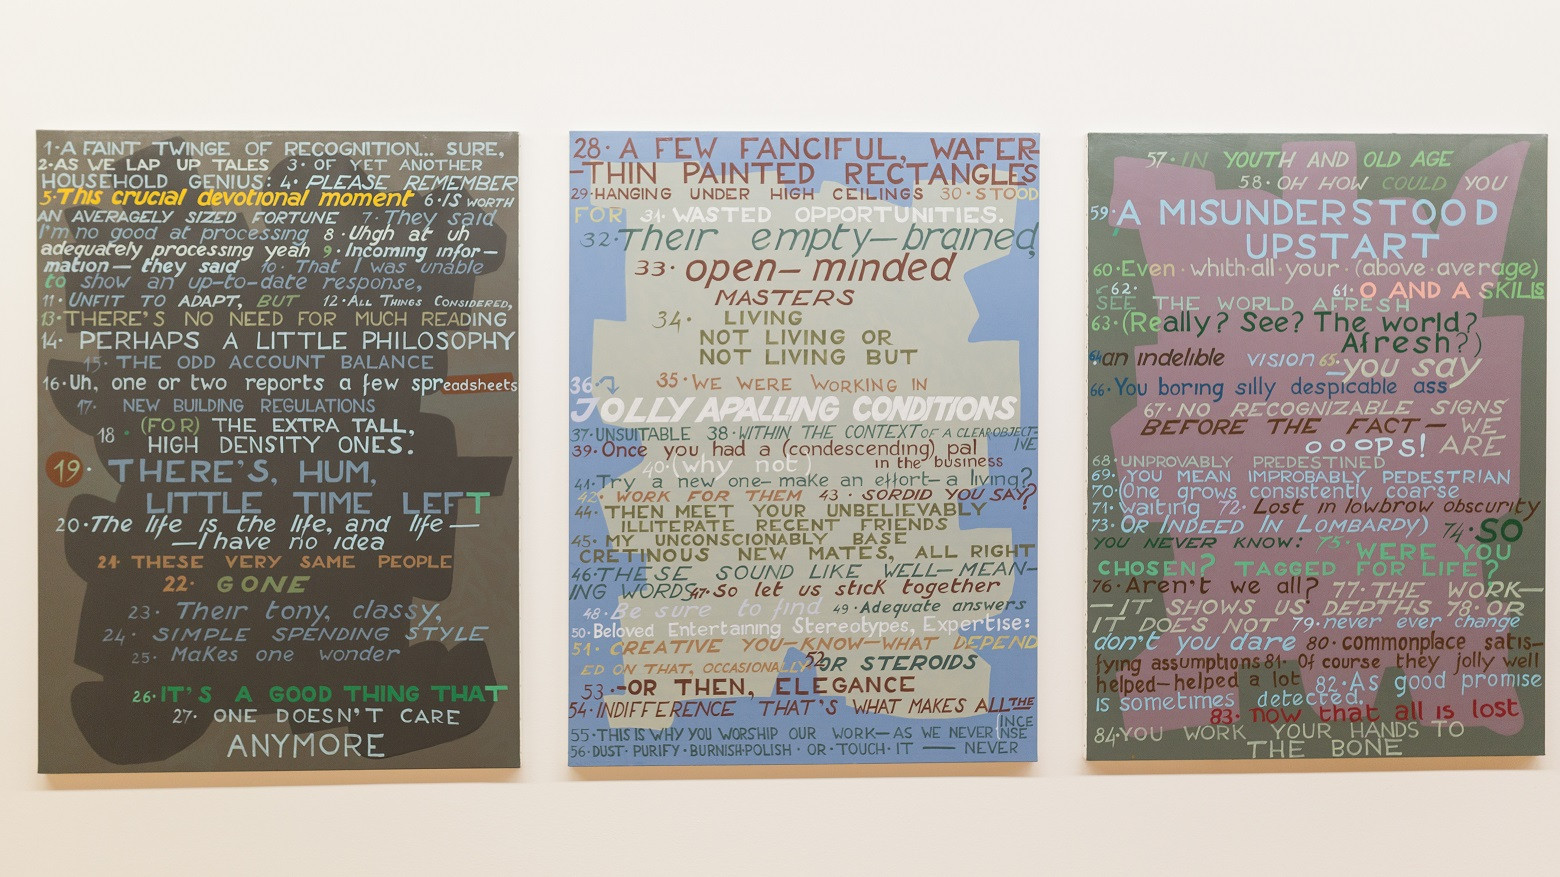 1·A FAINT TWINGE OF RECOGNITION... SURE,
2·AS WE LAP UP TALES 3· OF YET ANOTHER
HOUSEHOLD GENIUS: 4· PLEASE REMEMBER
5·This crucial devotional moment 6·IS WORTH
AN AVERAGELY SIZED FORTUNE 7·They said
I'm no good at processing 8·Uhgh at uh
adequately processing yeah 9·Incoming infor—
mation— they said 10·That I was unable
to show an up-to-date response,
11·UNFIT TO ADAPT, BUT 12·ALL THINGS CONSIDERED,
13·THERE'S NO NEED FOR MUCH READING
14· PERHAPS A LITTLE PHILOSOPHY
15·THE ODD ACCOUNT BALANCE
16·Uh, one or two reports a few spreadsheets
17· NEW BUILDING REGULATIONS
18· (FOR) THE EXTRA TALL,
HIGH DENSITY ONES.
19· THERE'S, HUM,
LITTLE TIME LEFT
20·The life is the life, and life—
—I have no idea
21·THESE VERY SAME PEOPLE
22· GONE
23· Their tony, classy,
24· SIMPLE SPENDING STYLE
25· Makes one wonder
26·IT'S A GOOD THING THAT
27· ONE DOESN'T CARE
ANYMORE
28·A FEW FANCIFUL, WAFER-
-THIN PAINTED RECTANGLES
29·HANGING UNDER HIGH CEILINGS 30·STOOD
FOR 31·WASTED OPPORTUNITIES.
32·Their empty—brained,
33· open—minded
MASTERS
34· LIVING
NOT LIVING OR
NOT LIVING BUT
35·WE WERE WORKING IN
36·
JOLLY APALLING CONDITIONS
37·UNSUITABLE 38·WITHIN THE CONTEXT OF A CLEAR OBJECT-
IVE
39·Once you had a (condescending) pal
40·(why not) in the business
41·Try a new one—make an effort—a living?
42·WORK FOR THEM 43·SORDID YOU SAY?
44·THEN MEET YOUR UNBELIEVABLY
ILLITERATE RECENT FRIENDS
45·MY UNCONSCIONABLY BASE
CRETINOUS NEW MATES, ALL RIGHT
46·THESE SOUND LIKE WELL—MEAN-
ING WORDS 47·So let us stick together
48·Be sure to find 49·Adequate answers
50·Beloved Entertaining Stereotypes, Expertise:
51·CREATIVE YOU—KNOW—WHAT DEPEND
ED ON THAT, OCCASIONALLY 52·OR STEROIDS
53·-OR THEN, ELEGANCE
54·INDIFFERENCE THAT'S WHAT MAKES ALL THE
55·THIS IS WHY YOU WORSHIP OUR WORK—AS WE NEVER RINSE
56·DUST·PURIFY·BURNISH·POLISH·OR·TOUCH·IT — NEVER
57·IN YOUTH AND OLD AGE
58·OH HOW COULD YOU
59·A MISUNDERSTOOD
UPSTART
60·Even whith·all your (above average)
62· 61·O AND A SKILLS
SEE THE WORLD AFRESH
63·(Really? See? The world?
Afresh?)
64·an indelible vision 65·
—you say
66·You boring silly despicable ass
67·NO RECOGNIZABLE SIGNS
BEFORE THE FACT— WE
ooops! ARE
68·UNPROVABLY PREDESTINED
69·YOU MEAN IMPROBABLY PEDESTRIAN
70·(One grows consistently coarse
71·Waiting 72·Lost in lowbrow obscurity
73·OR INDEED IN LOMBARDY) 74·SO
YOU NEVER KNOW: 75·WERE YOU
CHOSEN? TAGGED FOR LIFE?
76·Aren't we all? 77·THE WORK—
—IT SHOWS US DEPTHS 78·OR
IT DOES NOT 79·never ever change
don't you dare 80·commonplace satis-
fying assumptions 81·Of course they jolly well
helped—helped a lot 82·As good promise
is sometimes detected.
83·now that all is lost
84·YOU WORK YOUR HANDS TO
THE BONE